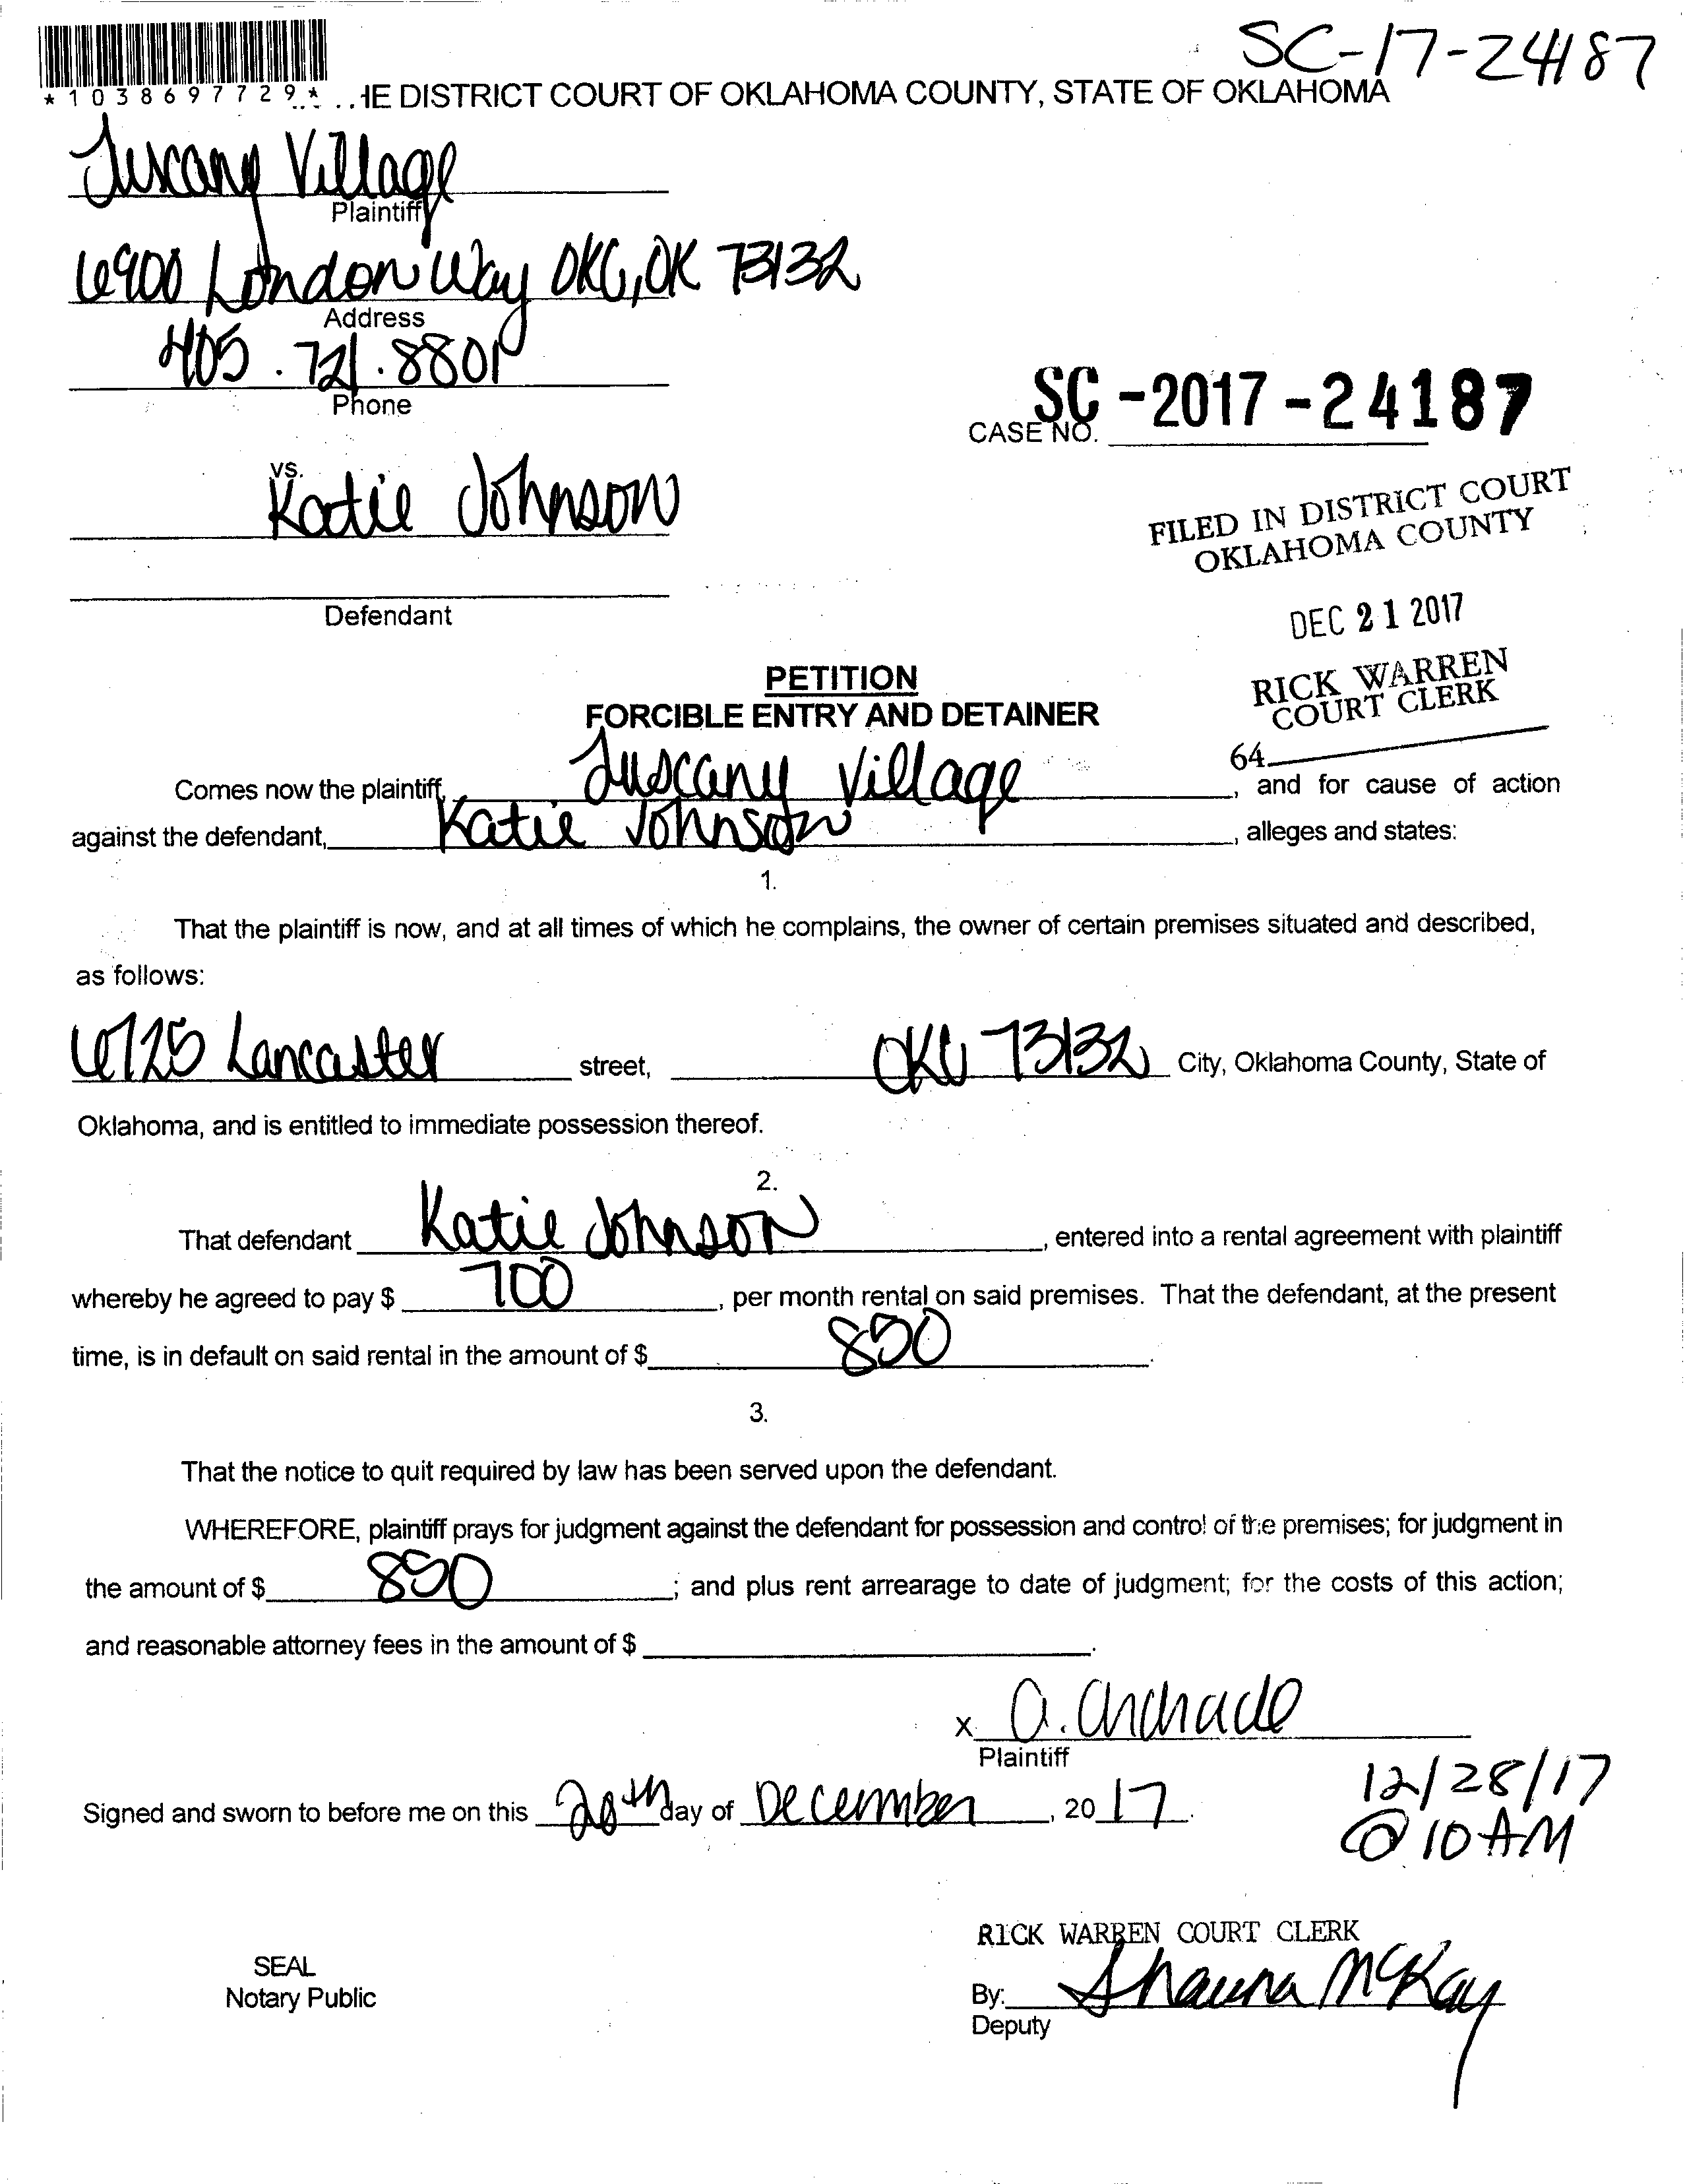 SC-17-24187
*1038697729*
HE DISTRICT COURT OF OKLAHOMA COUNTY, STATE OF OKLAHOMA
Tuscany Village
Plaintiff
6900 London Way OKC, OK 73132
Address
405.721.8801
Phone
SC-2017-24187
CASE NO.
vs.
Katie Johnson
FILED IN DISTRICT COURT
OKLAHOMA COUNTY
Defendant
DEC 21 2017
RICK WARREN
COURT CLERK
64
PETITION
FORCIBLE ENTRY AND DETAINER
Comes now the plaintiff, Tuscany Village, and for cause of action
against the defendant, Katie Johnson, alleges and states:
1.
That the plaintiff is now, and at all times of which he complains, the owner of certain premises situated and described,
as follows:
6725 Lancaster street, OKC 73132 City, Oklahoma County, State of
Oklahoma, and is entitled to immediate possession thereof.
2.
That defendant Katie Johnson, entered into a rental agreement with plaintiff
whereby he agreed to pay $ 700, per month rental on said premises. That the defendant, at the present
time, is in default on said rental in the amount of $ 850.
3.
That the notice to quit required by law has been served upon the defendant.
WHEREFORE, plaintiff prays for judgment against the defendant for possession and control of the premises; for judgment in
the amount of $ 850; and plus rent arrearage to date of judgment; for the costs of this action;
and reasonable attorney fees in the amount of $ .
x A. Andrade
Plaintiff
Signed and sworn to before me on this 20th day of December, 2017.
12/28/17
@ 10 AM
RICK WARREN COURT CLERK
SEAL
Notary Public
By: Shauna McKay
Deputy